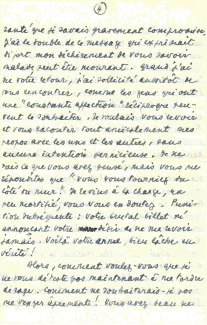 4
santé que je savais gravement compromise,
j'ai le double de ce message qui exprimait
si fort mon déchirement de vous savoir
malade, peut être mourant. Quand j'ai
su votre retour, j'ai sollicité aussitôt de
vous rencontrer, comme les gens qui ont
une "constante affection" réciproque peu-
vent le souhaiter. Je voulais vous revoir
et vous raconter tout amicalement mes
propos avec les uns et les autres, sans
aucune intention pernicieuse. Je ne
sais ce que vous avez pensé, mais vous me
répondites que "vous vous tourniez du
côté du mur". Je revins à la charge,
peu mortifié, vous vous en doutez.
subséquente : votre brutal billet m'
annonçant votre désir de ne me revoir
jamais. Voilà votre arme, bien lâche en
vérité !
Alors, comment voulez-vous que je
ne vous déteste pas maintenant à
de rage. Comment ne souhaiterais-je pas
me venger âprement ! Vous avez beau me